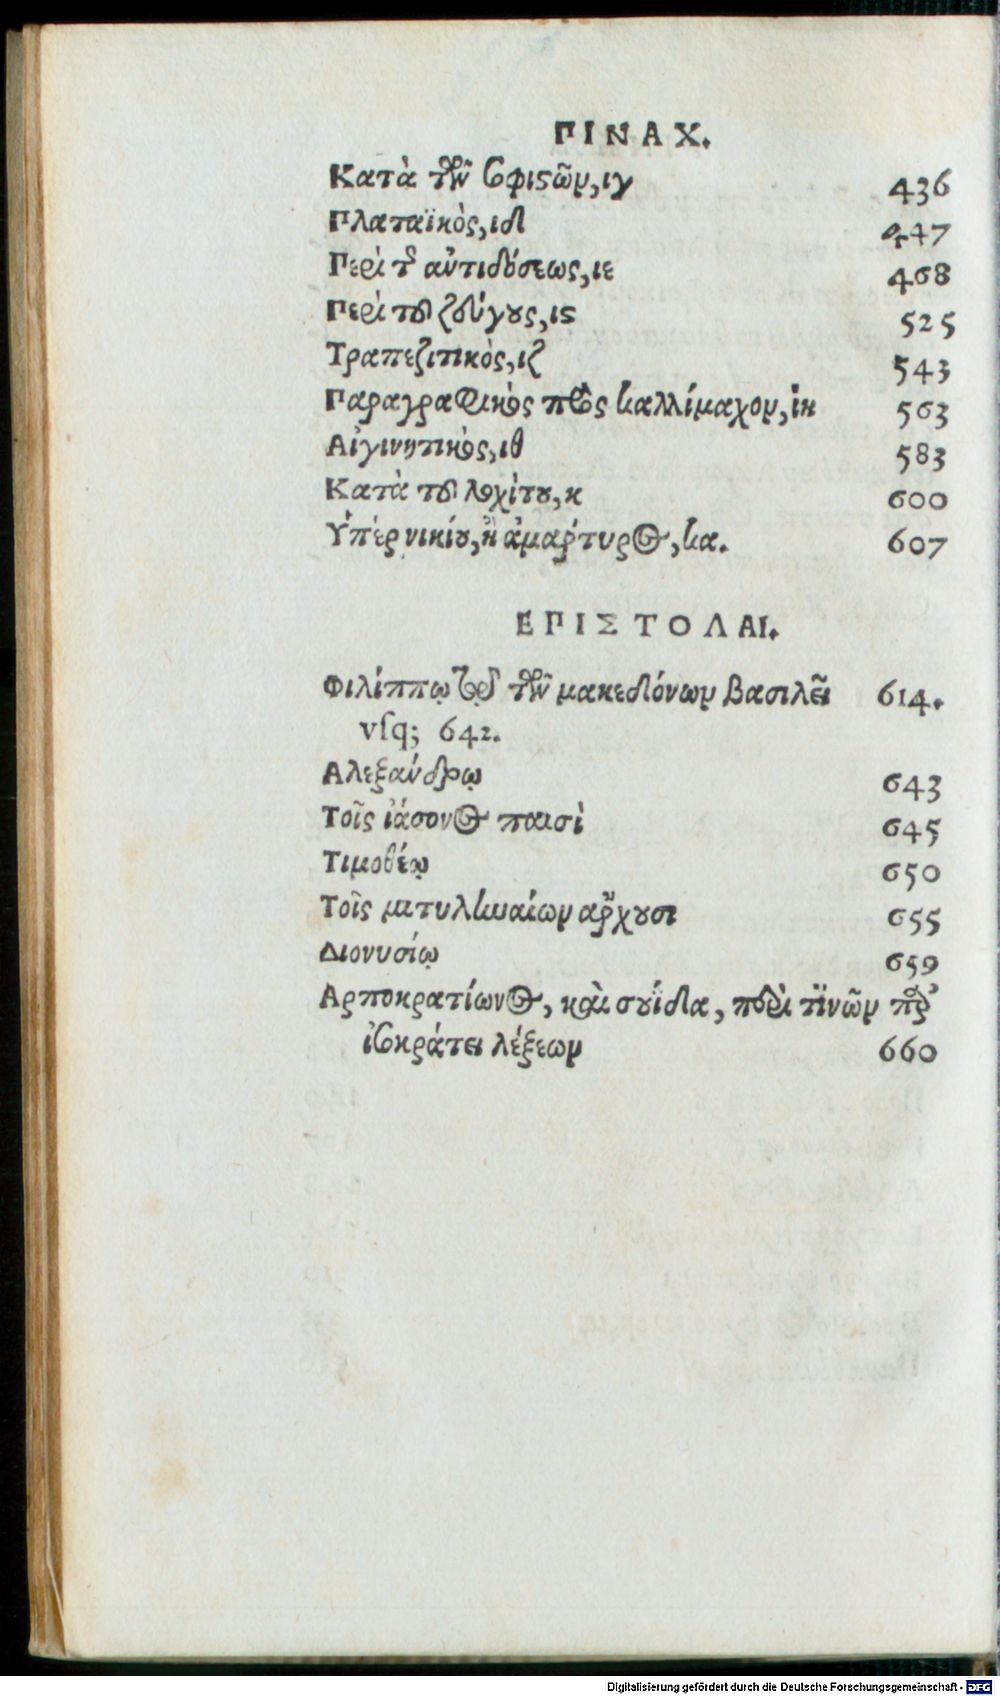 ΠΙΝΑΧ.
Κατὰ τῶν σοφιστῶν, ιγ 436
Πλαταϊκὸς, ιδ 447
Περὶ τῆς ἀντιδόσεως, ιε 468
Περὶ τοῦ ζεύγους, ις 525
Τραπεζιτικὸς, ιζ 543
Παραγραφικὸς πρὸς καλλίμαχον, ιη 563
Αἰγινητικὸς, ιθ 583
Κατὰ τοῦ λοχίτου, κ 600
Ὑπὲρ νικίου, ἢ ἀμάρτυρος, κα. 607
ΕΠΙΣΤΟΛΑΙ.
Φιλίππῳ τῷ τῶν μακεδόνων βασιλεῖ 614.
vſq; 642.
Αλεξάνδρῳ 643
Τοῖς ἰάσονος παισὶ 645
Τιμοθέῳ 650
Τοῖς μιτυληναίων ἄρχουσι 655
Διονυσίῳ 659
Αρποκρατίωνος, καὶ σουίδα, περὶ τινῶν παρ᾽
ἰσοκράτει λέξεων 660
Digitalisierung gefördert durch die Deutsche Forschungsgemeinschaft - DFG